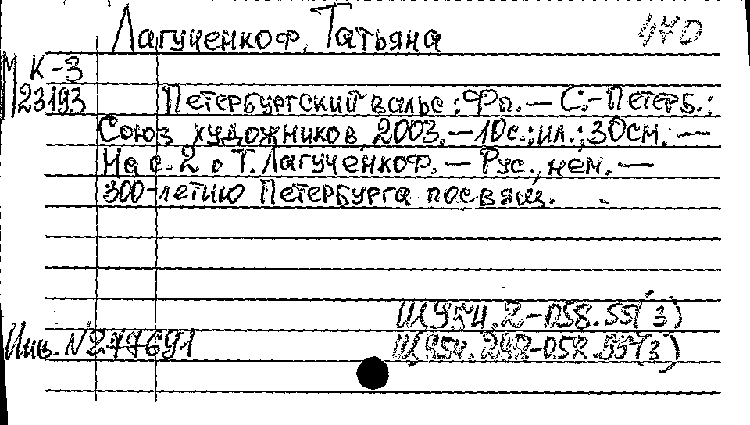 Лагученкоф, Татьяна 440
М К-3
23193 Петербургский вальс: Фп. — С.-Петерб.:
Союз художников, 2003. — 10с.: ил.; 30см. —
На с. 2 о Т. Лагученкоф. — Рус., нем. —
300-летию Петербурга посвящ.
Щ954.2-058.55(3)
Инв. № 279691 Щ954.292-058.55(3)